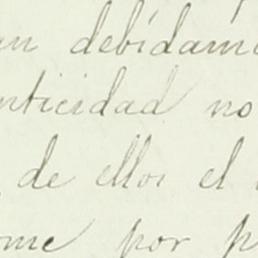 an debídame
nticidad no
de ellos el
ome por p